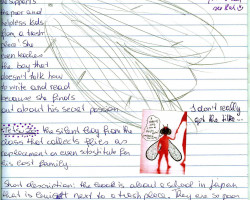 he supports
the poor and
helpless kids
from a trash
place! She
even teaches
the boy that
doesn't talk how
to write and read
because she finds
out about his secret passion.
I don't really
get the title...
the silent boy from the
class that collects flies as
replacement or even substitute for
his lost family
Short description: the book is about a school in Japan
that is built next to a trash place. They are so poor